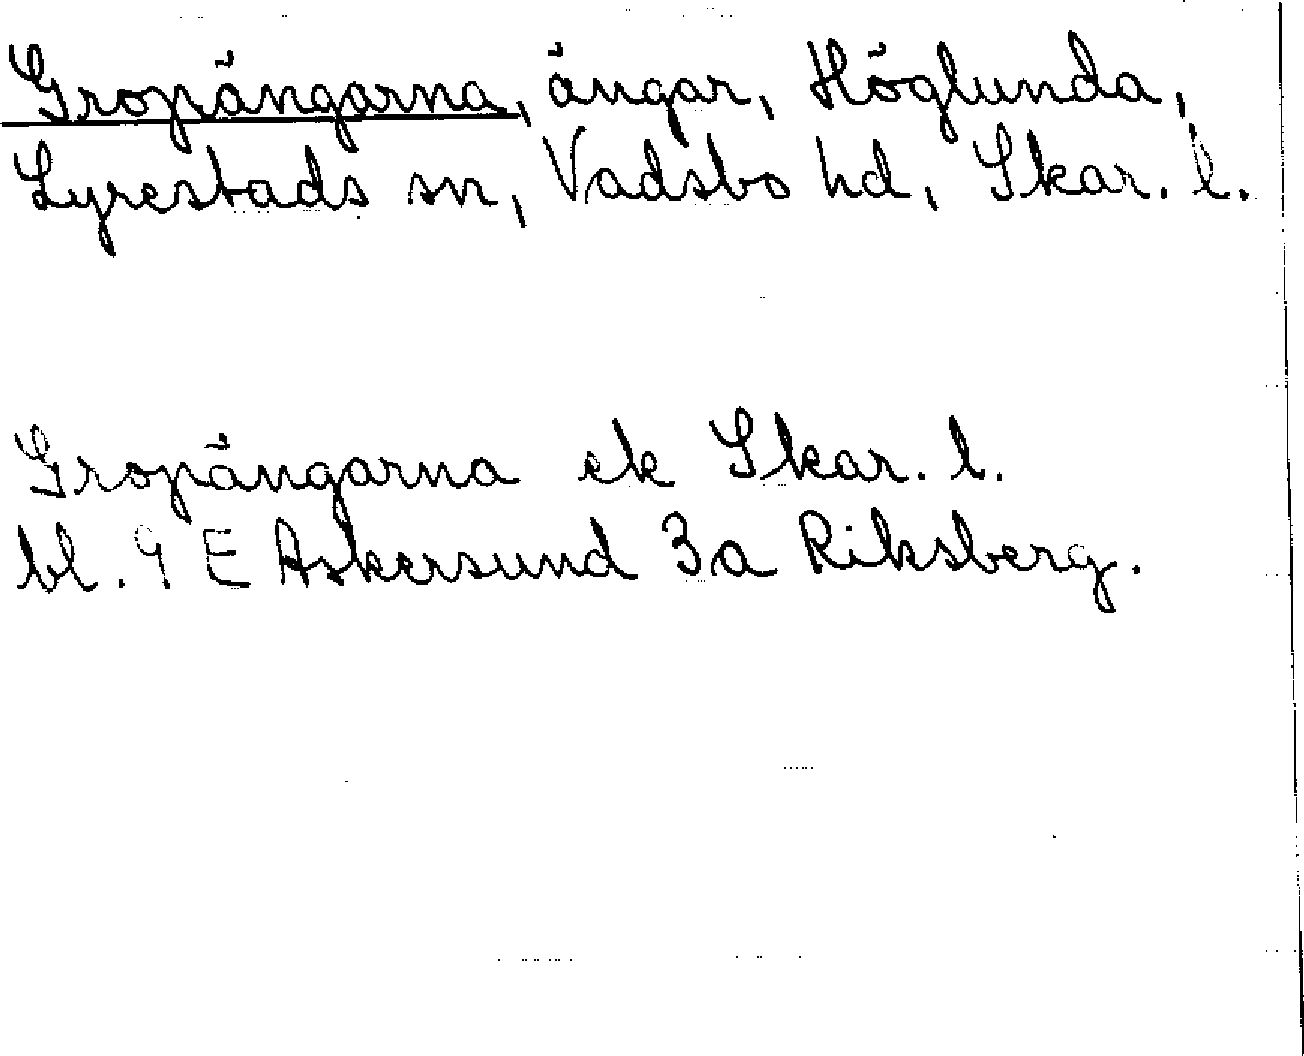 Gropängarna, ängar, Höglunda,
Lyrestads sn, Vadsbo hd, Skar. l.
Gropängarna ek Skar. l.
bl. 9 E Askersund 3a Riksberg.